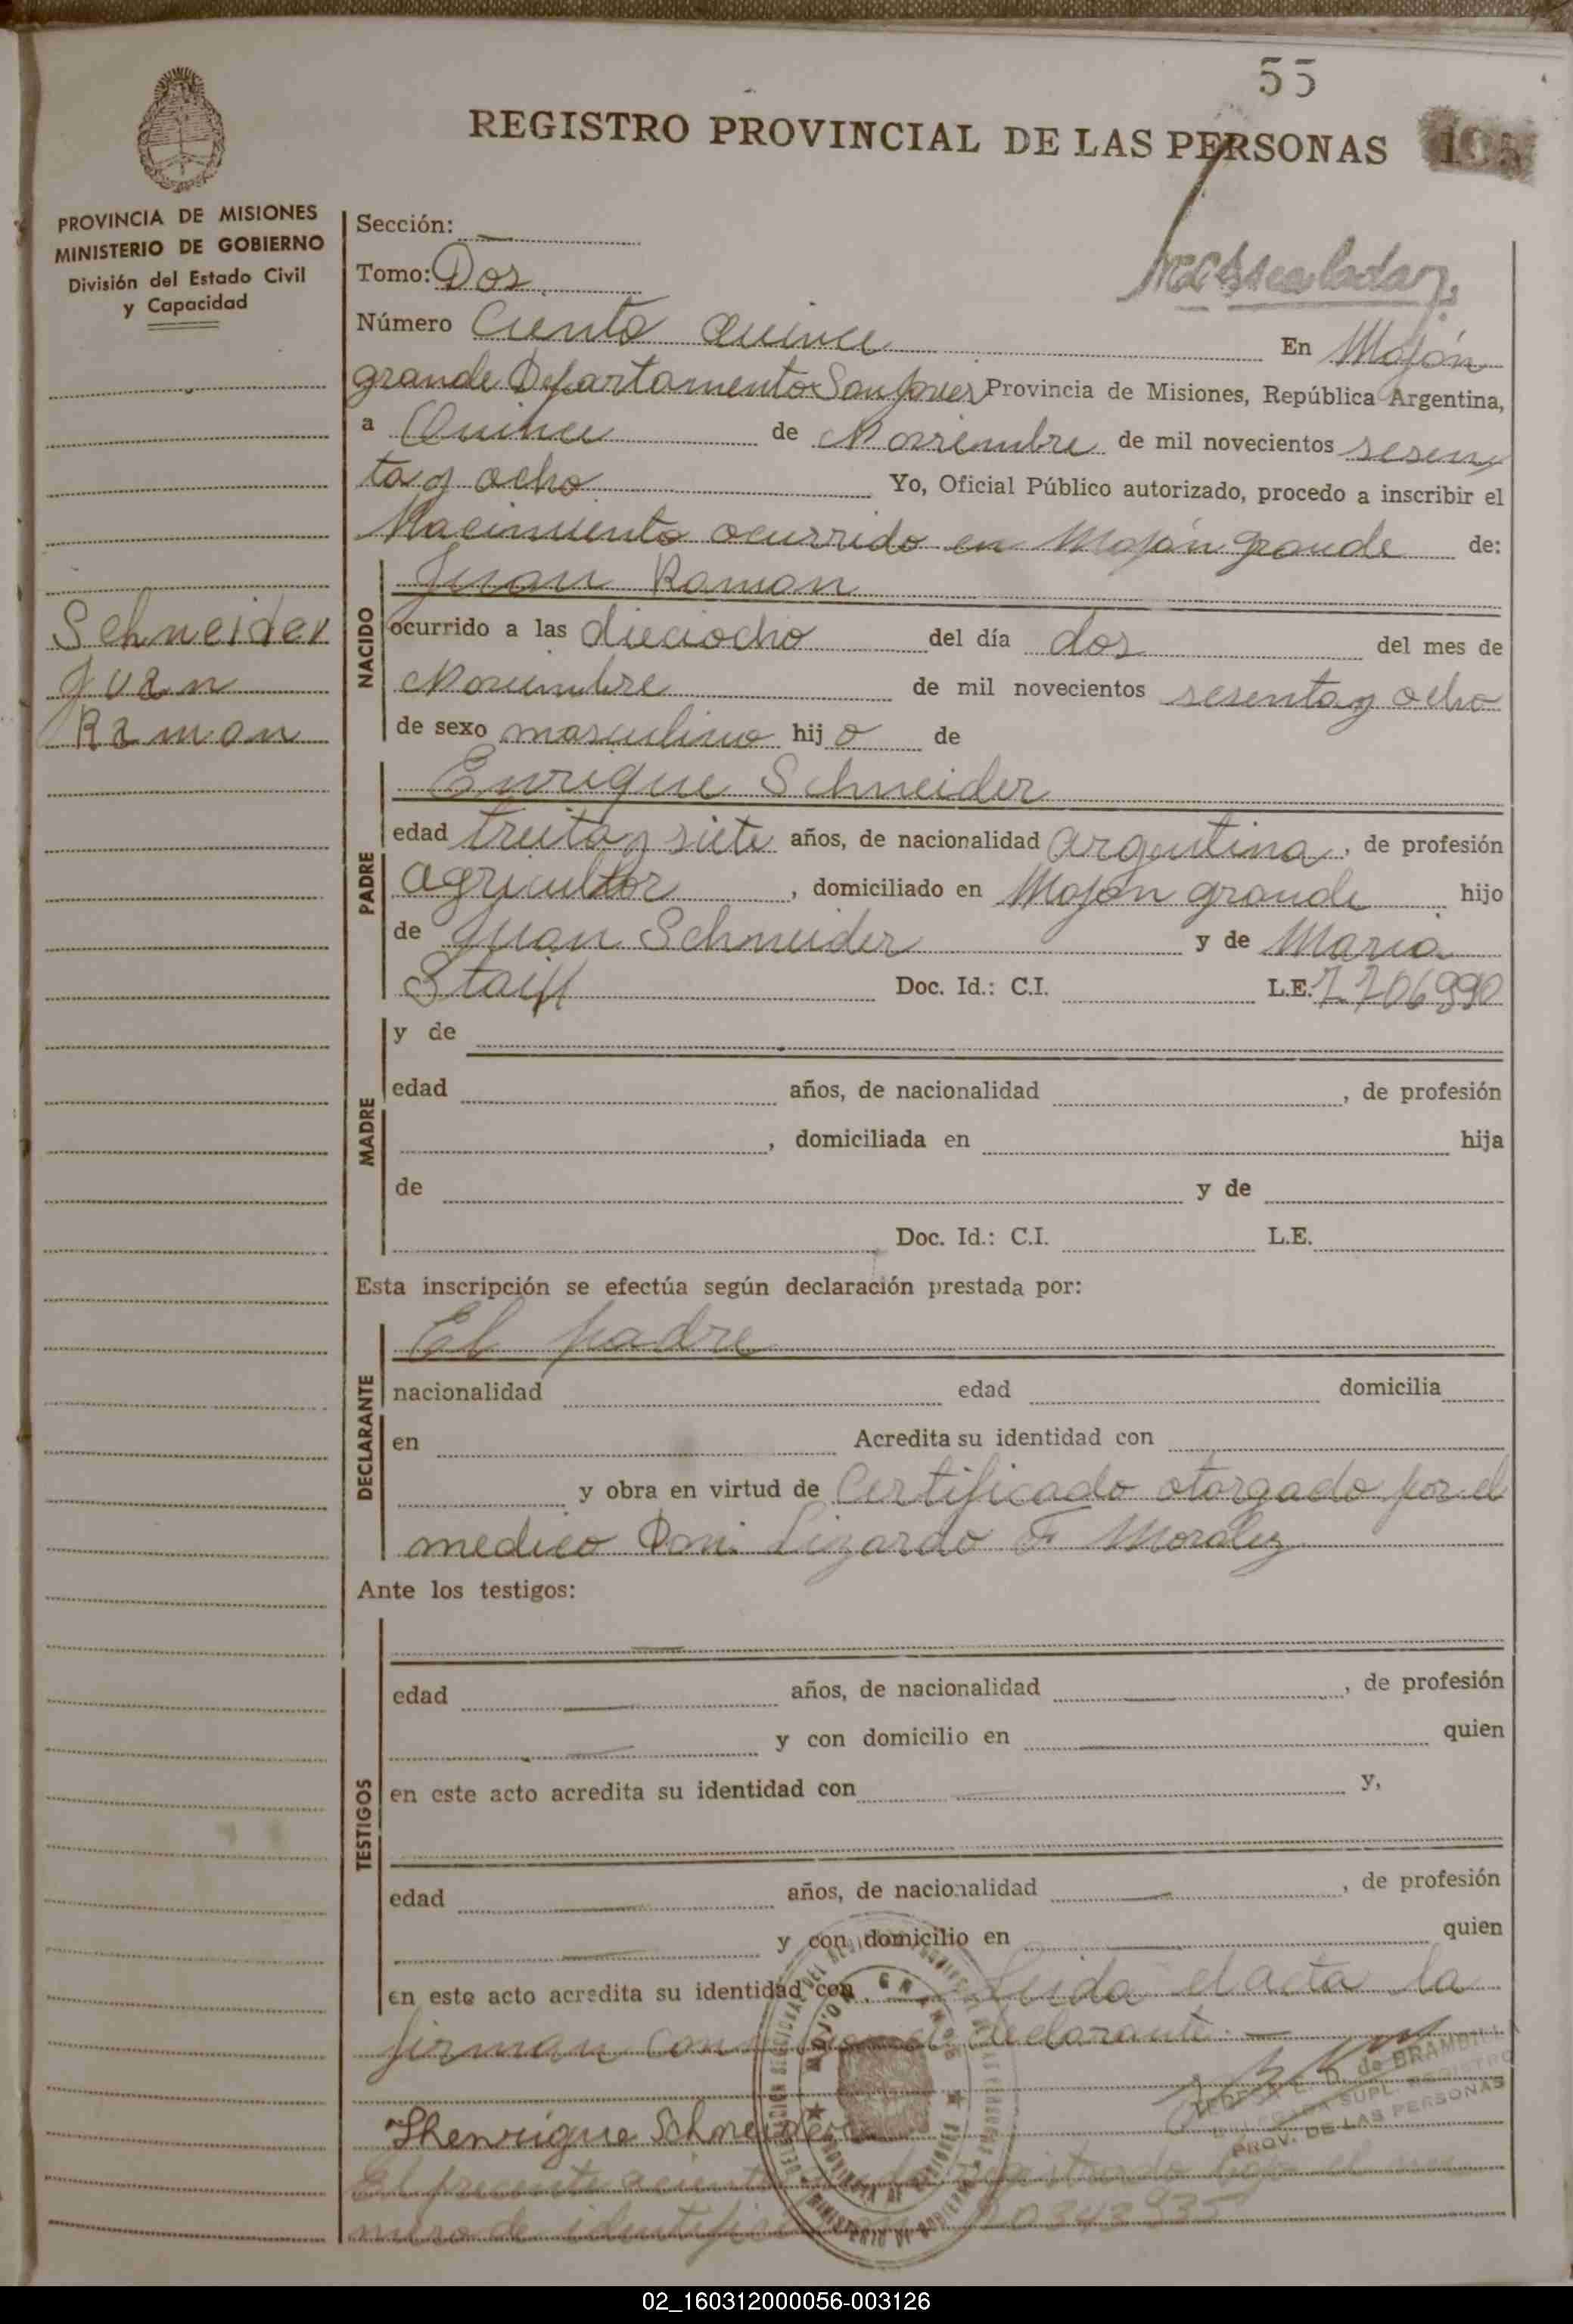 55
REGISTRO PROVINCIAL DE LAS PERSONAS
PROVINCIA DE MISIONES
MINISTERIO DE GOBIERNO
División del Estado Civil
y Capacidad
Schneider
Juan
Ramon
Sección:
Tomo: Dos
Número Ciento Quince En Mojón
grande Departamento San Javier Provincia de Misiones, República Argentina,
a Quince de Noviembre de mil novecientos sesen
ta y ocho Yo, Oficial Público autorizado, procedo a inscribir el
Nacimiento ocurrido en Mojón grande de:
NACIDO
Juan Ramon
ocurrido a las dieciocho del día dos del mes de
Noviembre de mil novecientos sesenta y ocho
de sexo masculino hijo de
PADRE
Enrique Schneider
edad treita y siete años, de nacionalidad argentina, de profesión
agricultor, domiciliado en Mojón grande hijo
de Juan Schneider y de Maria
Doc. Id.: C.I. L.E. 7.706990
MADRE
y de
edad años, de nacionalidad , de profesión
, domiciliada en hija
de y de
Doc. Id.: C.I. L.E.
Esta inscripción se efectúa según declaración prestada por:
DECLARANTE
El padre
nacionalidad edad domicilia
en Acredita su identidad con
y obra en virtud de Certificado otorgado por el
medico Don: Lizardo F Moralez
Ante los testigos:
TESTIGOS
edad años, de nacionalidad , de profesión
y con domicilio en quien
en este acto acredita su identidad con y,
edad años, de nacionalidad , de profesión
y con domicilio en quien
en este acto acredita su identidad con Leida el acta la
firman declarante. —
de BRAMBILL
SUPL. REGISTRO
PROV. DE LAS PERSONAS
Henrique Schneider
El presente bajo el nu
mero de 20343935
02_160312000056-003126